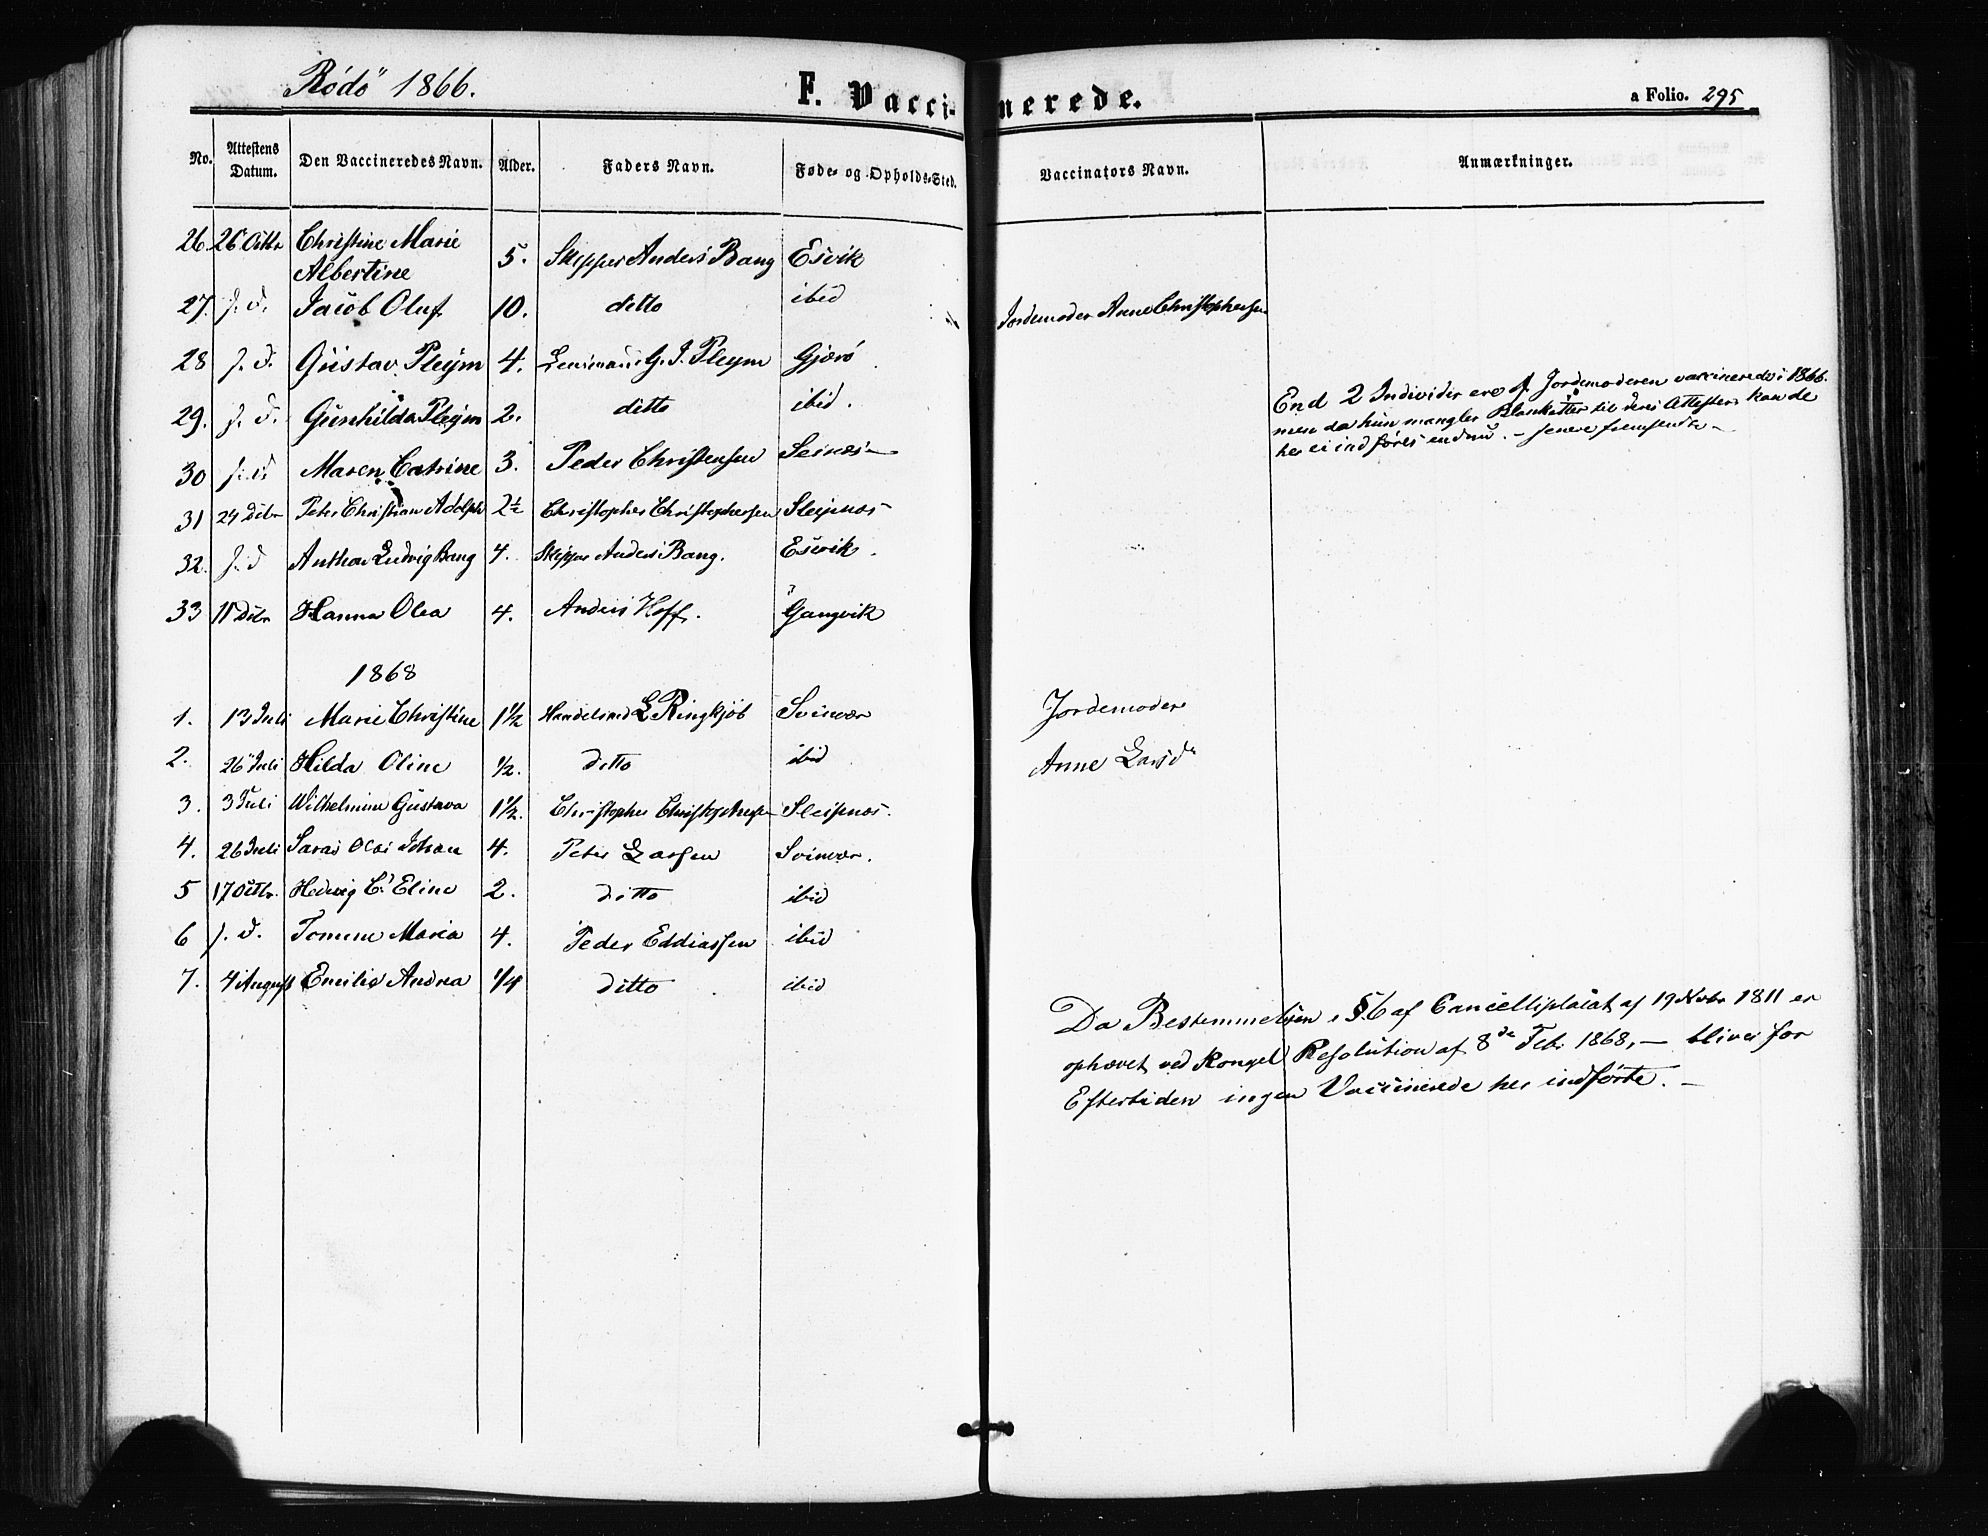 Rödö 1866.
F. Vaccinerede.
a Folio. 295
No. Attestens Datum. Den Vaccineredes Navn. Alder. Faders Navn. Føde- og Opholds-Sted. Vaccinators Navn. Anmærkninger.
26. 26 Octbr Christine Marie Albertine 5. Skipper Anders Bang Esvik
27. s. d. Jacob Oluf 10. ditto ibid Jordemoder Anne Christophersen
28 s. d. Gustav Pleym 4. Lensmand G. J. Pleym Gjerö
29. s. d. Gunhilda Pleym 2. ditto ibid.
End 2 Individer ere af Jordemoderen vaccinerede i 1866.
men da hun mangler Blanketter til deres Attester kan de
her ei indføres endnu. – senere fremsendte –
30 s. d Maren Catrine 3. Peder Christensen Selnæs
31 24 Dcbr Peter Christian Adolph 2½ Christopher Christophersen Sleipnæs
32. s. d Anthon Ludvig Bang 4. Skipper Anders Bang. Esvik.
33 18 Dcbr Hanna Olea 4. Anders Hoff. Gangvik
1868
1. 13 Juli Marie Christine 1½ Handelsmd L Ringkjöb Svinvær Jordemoder
2. 26 Juli Hilda Oline ½. ditto ibid Anne Larsdr
3. 3 Juli Wilhelmine Gustava 1½. Christopher Christophersen Sleipnæs.
4. 26 Juli Olai Johan 4. Peter Larsen Svinvær.
5 17 Octbr. Hedevig C. Eline 2. ditto ibid
6 s. d. Tomine Maria 4. Peder Eddiassen ibid
7. 4 August Emilie Andrea ¼ ditto ibid
Da Bestemmelsen i § 6 af Cancelliplacat af 19 Novbr 1811 er
ophævet ved Kongel Resolution af 8de Feb. 1868, – bliver for
Eftertiden ingen Vaccinerede her indførte. –